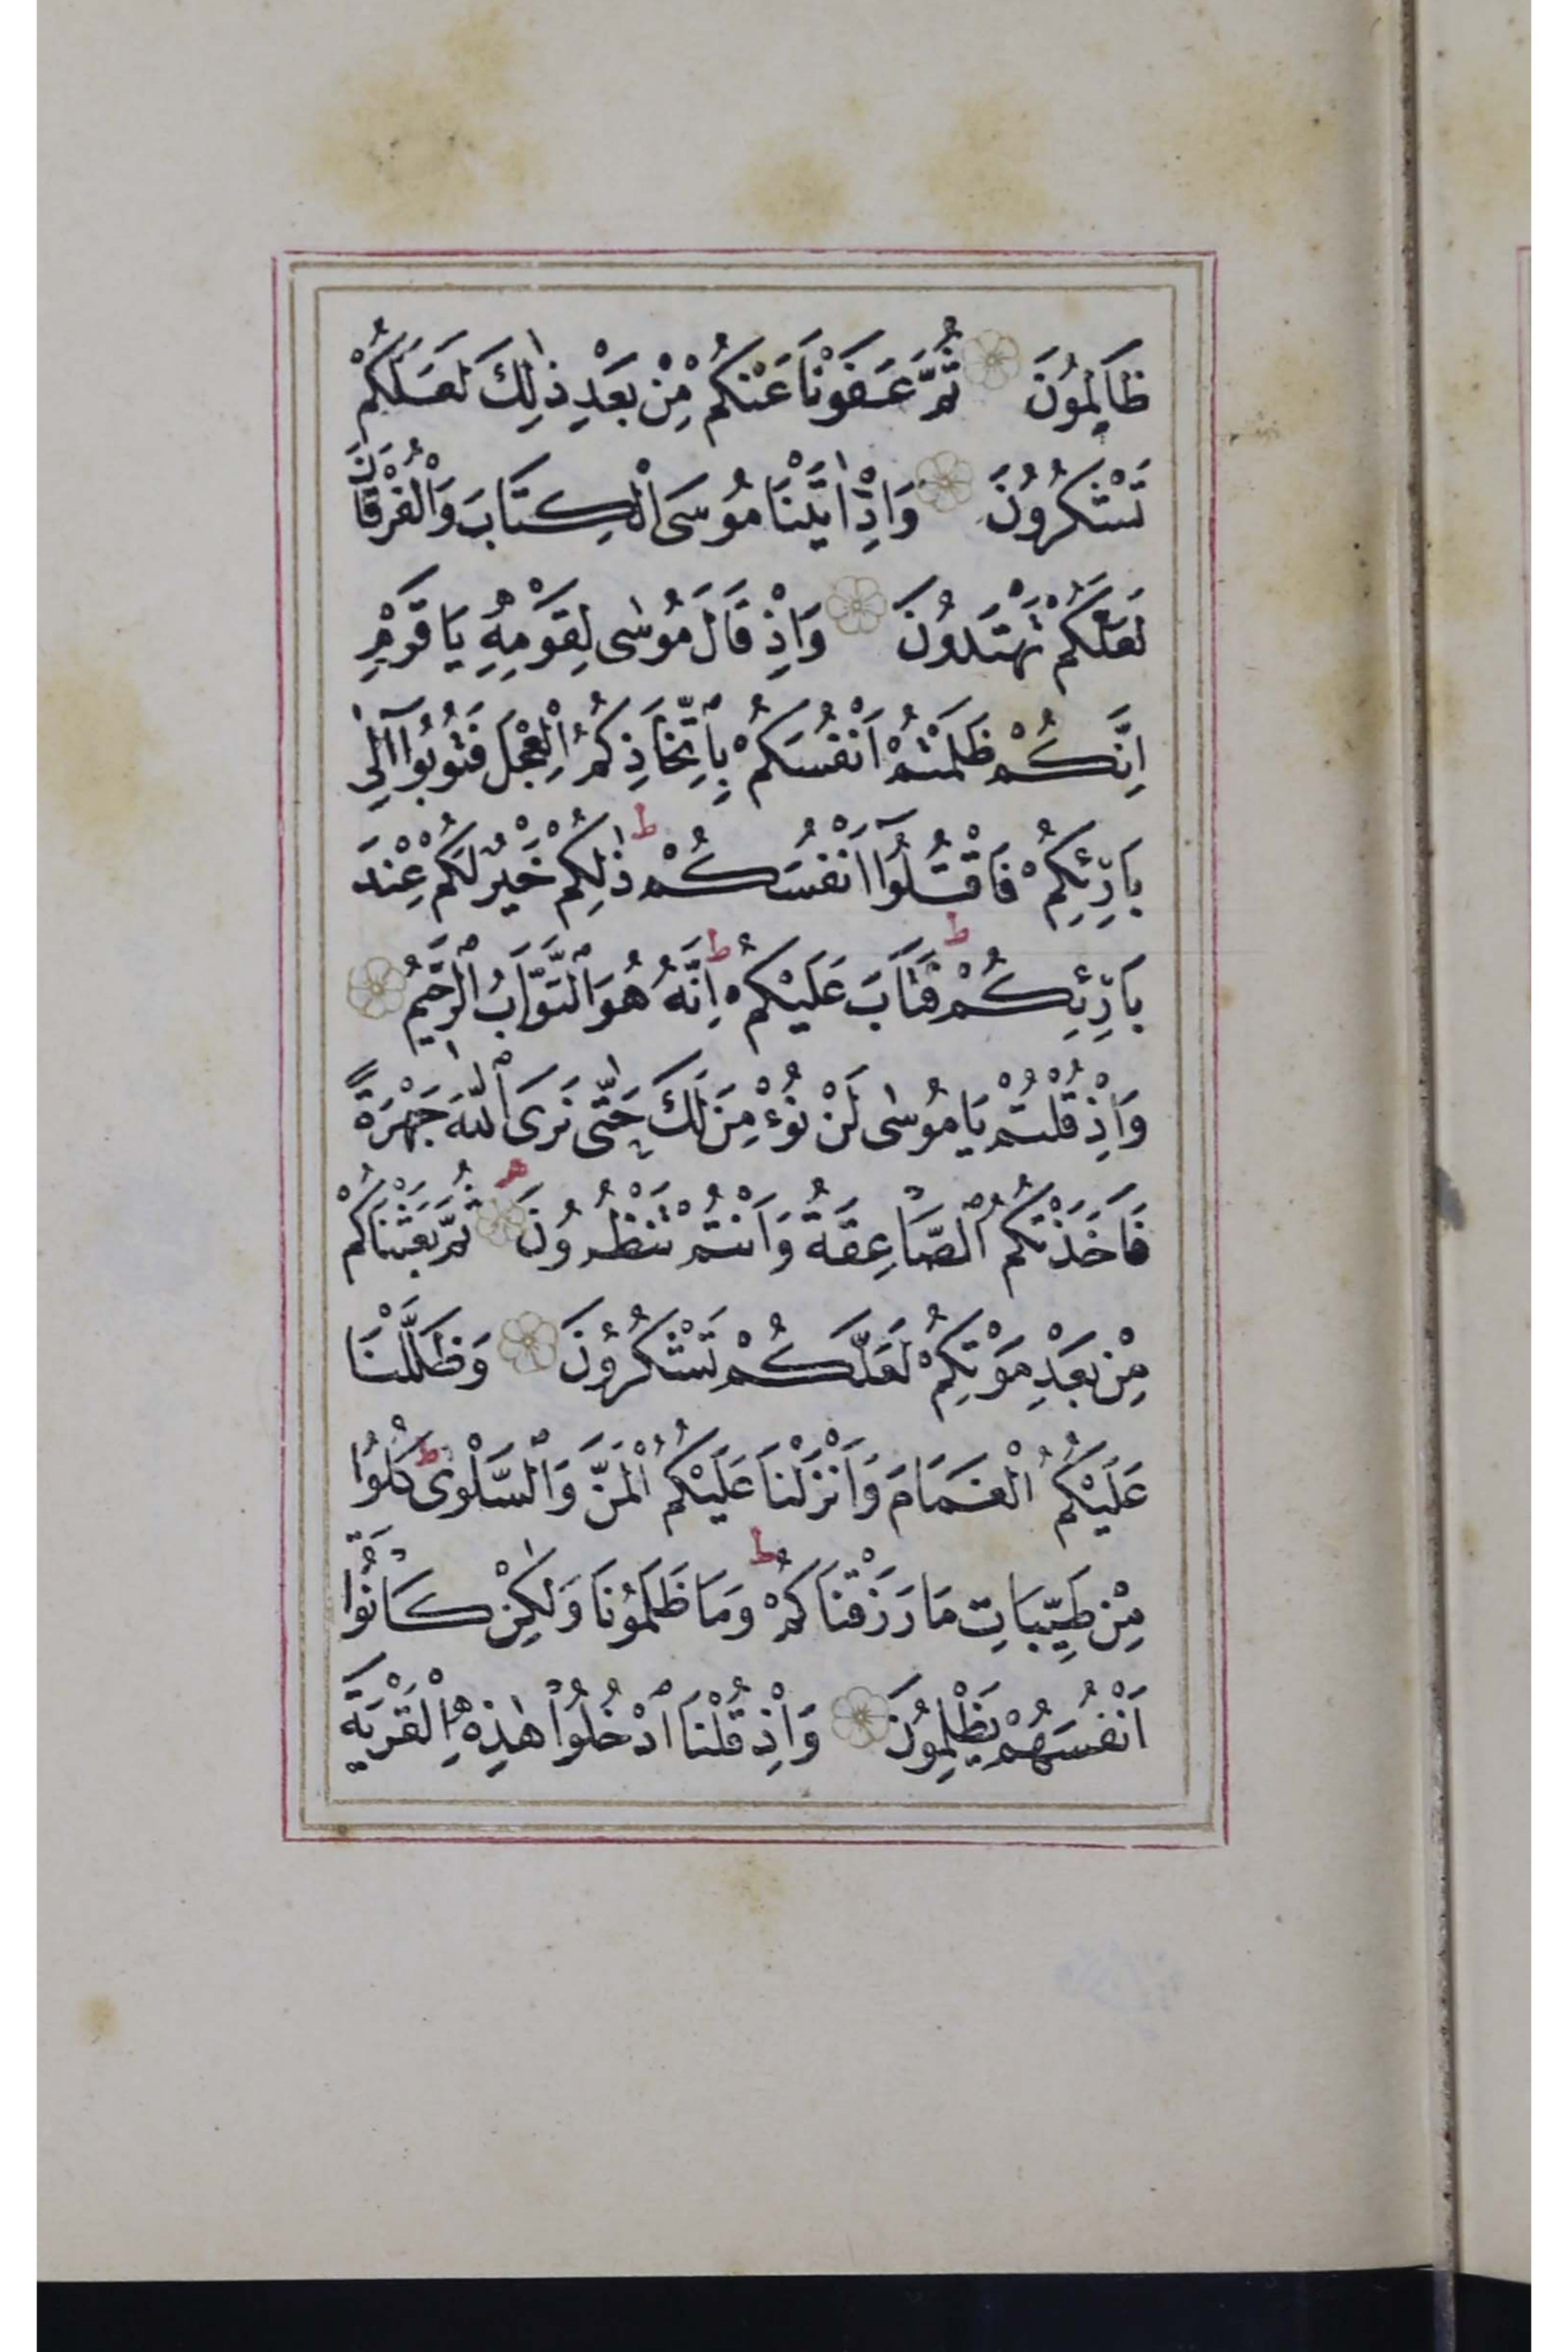 ظَالِمُونَ ثُمَّ عَفَوْنَا عَنْكُمْ مِنْ بَعْدِ ذٰلِكَ لَعَلَّكُمْ
تَشْكُرُونَ وَاِذْ اٰتَيْنَا مُوسَى الْكِتَابَ وَالْفُرْقَانَ
لَعَلَّكُمْ تَهْتَدُونَ وَاِذْ قَالَ مُوسٰى لِقَوْمِهِ يَا قَوْمِ
اِنَّكُمْ ظَلَمْتُمْ اَنْفُسَكُمْ بِاتِّخَاذِكُمُ الْعِجْلَ فَتُوبُوا اِلٰى
بَارِئِكُمْ فَاقْتُلُوا اَنْفُسَكُمْ ط ذٰلِكُمْ خَيْرٌ لَكُمْ عِنْدَ
بَارِئِكُمْ ط فَتَابَ عَلَيْكُمْ ط اِنَّهُ هُوَ التَّوَّابُ الرَّحِيمُ
وَاِذْ قُلْتُمْ يَا مُوسٰى لَنْ نُؤْمِنَ لَكَ حَتّٰى نَرَى اللّٰهَ جَهْرَةً
فَاَخَذَتْكُمُ الصَّاعِقَةُ وَاَنْتُمْ تَنْظُرُونَ ثُمَّ بَعَثْنَاكُمْ
مِنْ بَعْدِ مَوْتِكُمْ لَعَلَّكُمْ تَشْكُرُونَ وَظَلَّلْنَا
عَلَيْكُمُ الْغَمَامَ وَاَنْزَلْنَا عَلَيْكُمُ الْمَنَّ وَالسَّلْوٰى ط كُلُوا
مِنْ طَيِّبَاتِ مَا رَزَقْنَاكُمْ ط وَمَا ظَلَمُونَا وَلٰكِنْ كَانُوا
اَنْفُسَهُمْ يَظْلِمُونَ وَاِذْ قُلْنَا ادْخُلُوا هٰذِهِ الْقَرْيَةَ